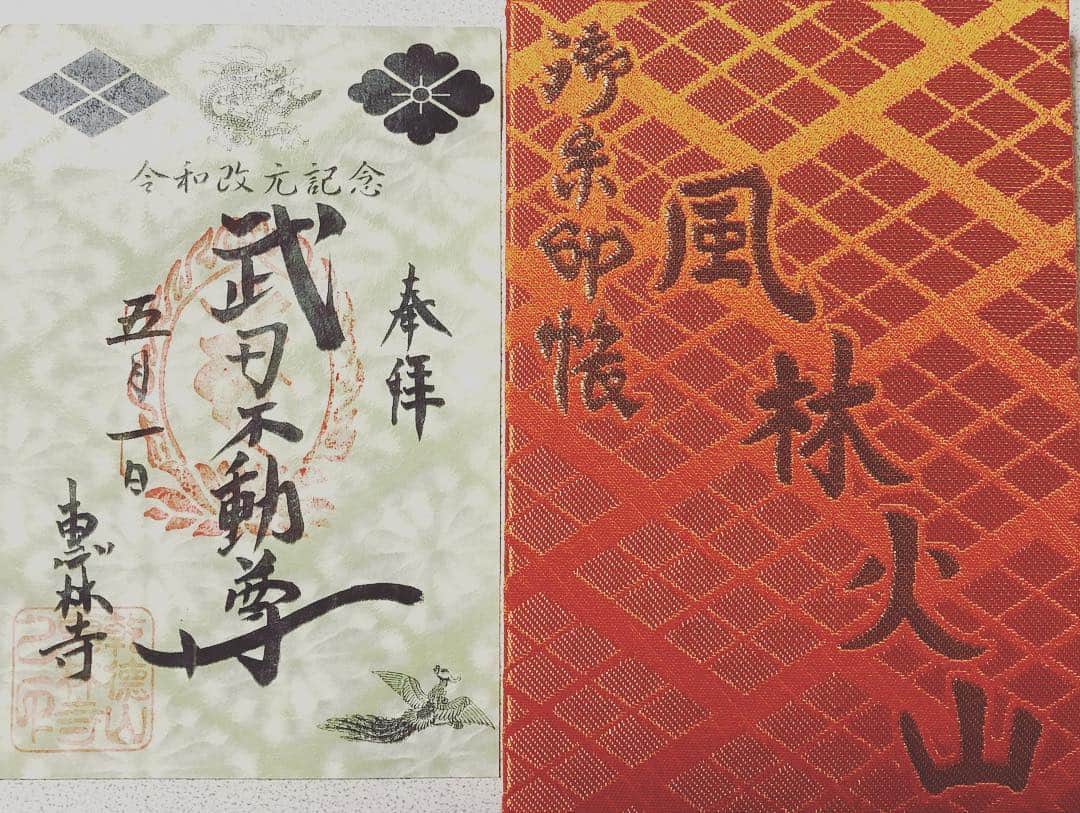 令和改元記念
奉拝
武田不動尊
五月一日
恵林寺
御朱印帳
風林火山